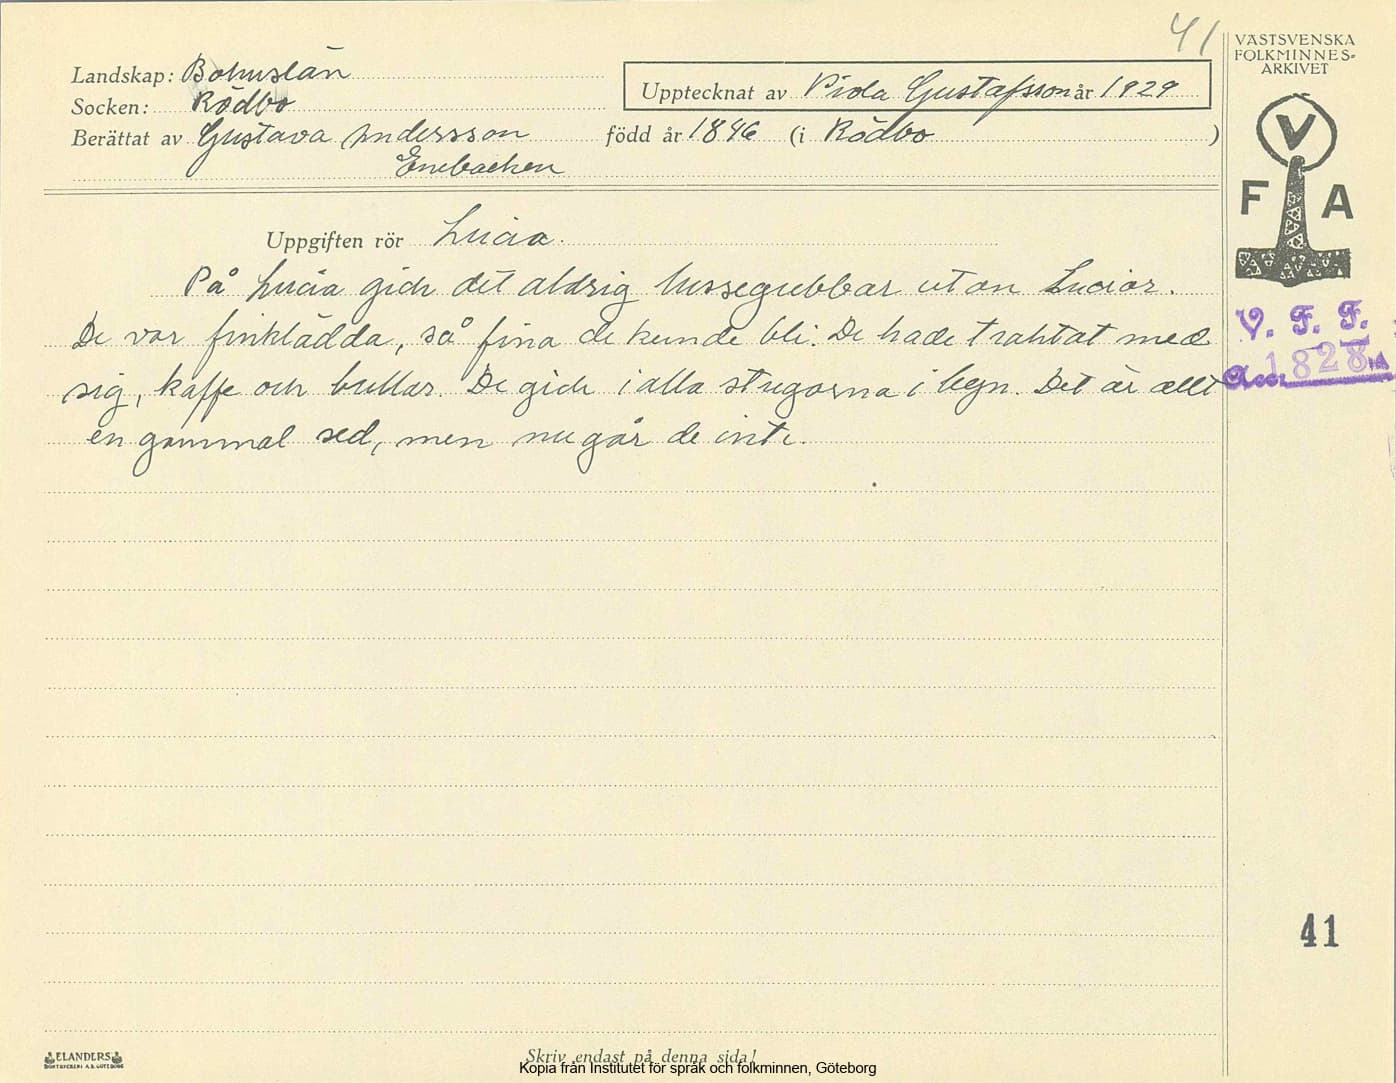 41
VÄSTSVENSKA
FOLKMINNES-
ARKIVET
Landskap: Bohuslän
Socken: Rödbo
Upptecknat av Viola Gustafsson år 1929
Berättat av Gustava Andersson född år 1846 (i Rödbo )
Enebacken
V
F A
Uppgiften rör Lucia.
På Lucia gick det aldrig lussegubbar utan Lucior.
De var finklädda, så fina de kunde bli. De hade traktat med
sig, kaffe och bullar. De gick i alla stugorna i byn. Det är allt
en gammal sed, men nu går de inte.
V. F. F.
Acc. 1828
41
ELANDERS
BOKTRYCKERI A.B. GÖTEBORG
Skriv endast på denna sida!
Kopia från Institutet för språk och folkminnen, Göteborg